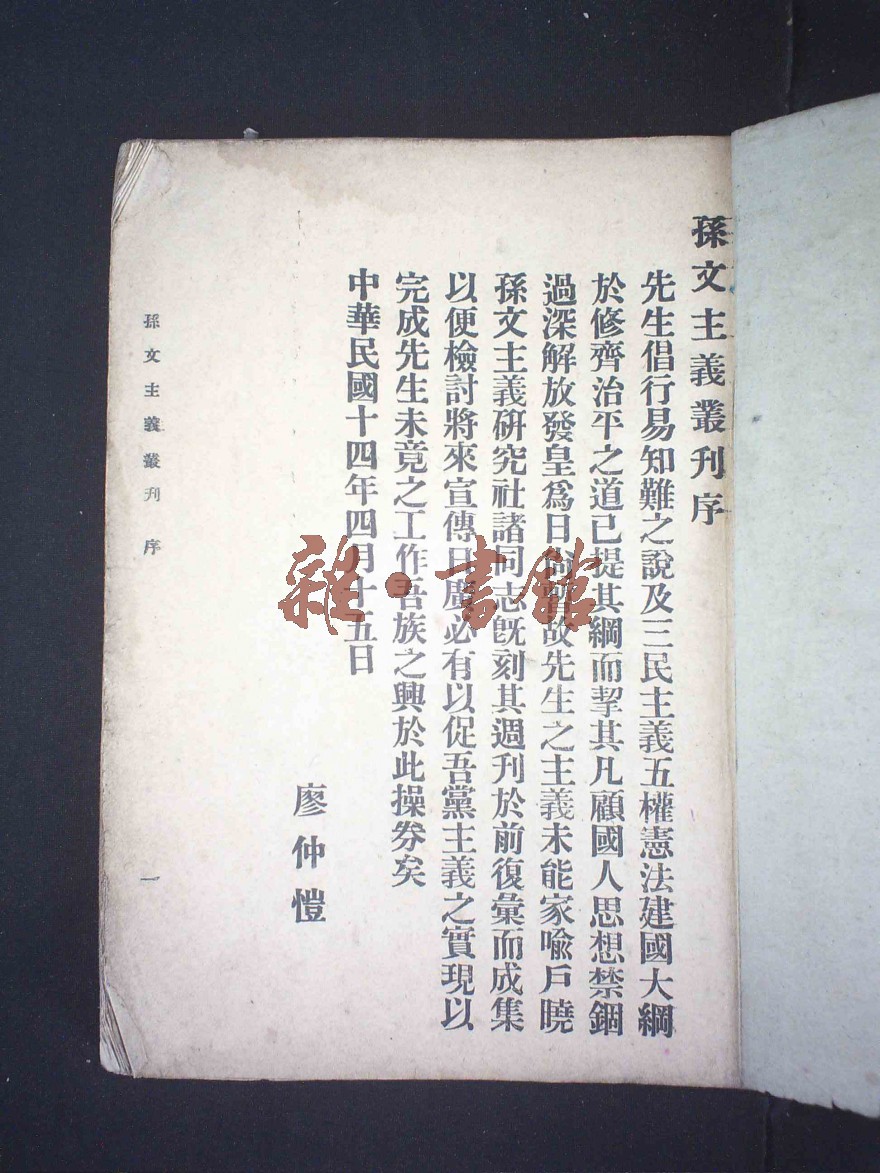 孫文主義叢刊序
先生倡行易知難之說及三民主義五權憲法建國大綱
於修齊治平之道已提其綱而挈其凡顧國人思想禁錮
過深解放發皇爲日尙暫故先生之主義未能家喩戶曉
孫文主義硏究社諸同志旣刻其週刊於前復彙而成集
以便檢討將來宣傳日廣必有以促吾黨主義之實現以
完成先生未竟之工作吾族之興於此操券矣
中華民國十四年四月十五日
廖仲愷
孫文主義叢刊 序
一
雜·書館